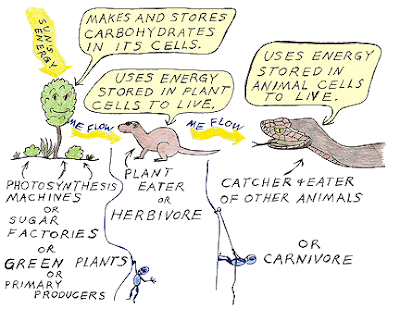 SUN'S
ENERGY
MAKES AND STORES
CARBOHYDRATES
IN ITS CELLS.
USES ENERGY
STORED IN PLANT
CELLS TO LIVE.
USES ENERGY
STORED IN
ANIMAL CELLS
TO LIVE.
ME FLOW
ME FLOW
PHOTOSYNTHESIS
MACHINES
OR
SUGAR
FACTORIES
OR
GREEN PLANTS
OR
PRIMARY
PRODUCERS
PLANT
EATER
OR
HERBIVORE
CATCHER & EATER
OF OTHER ANIMALS
OR
CARNIVORE